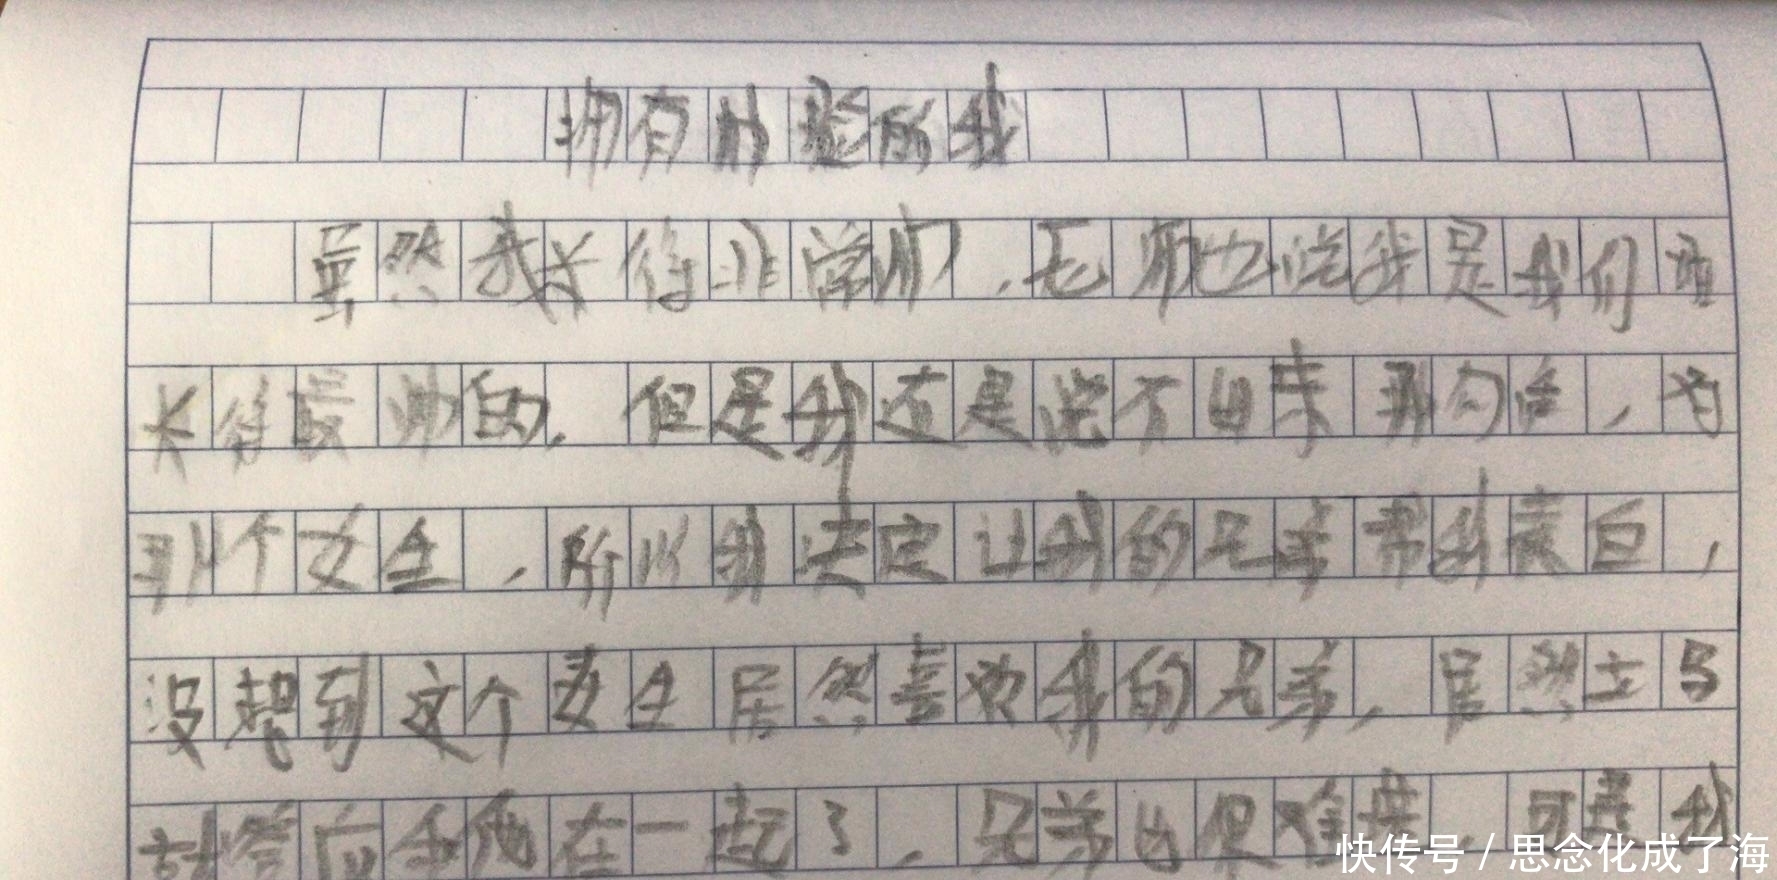 拥有体验的我
虽然我长得非常帅,老师也说我是我们班
长得最帅的,但是我还是说不出来那句话,对
那个女生,所以我决定让我的兄弟帮我表白,
没想到这个女生居然喜欢我的兄弟,居然
就答应和他在一起了,兄弟也很难受,可是我
快传号 / 思念化成了海